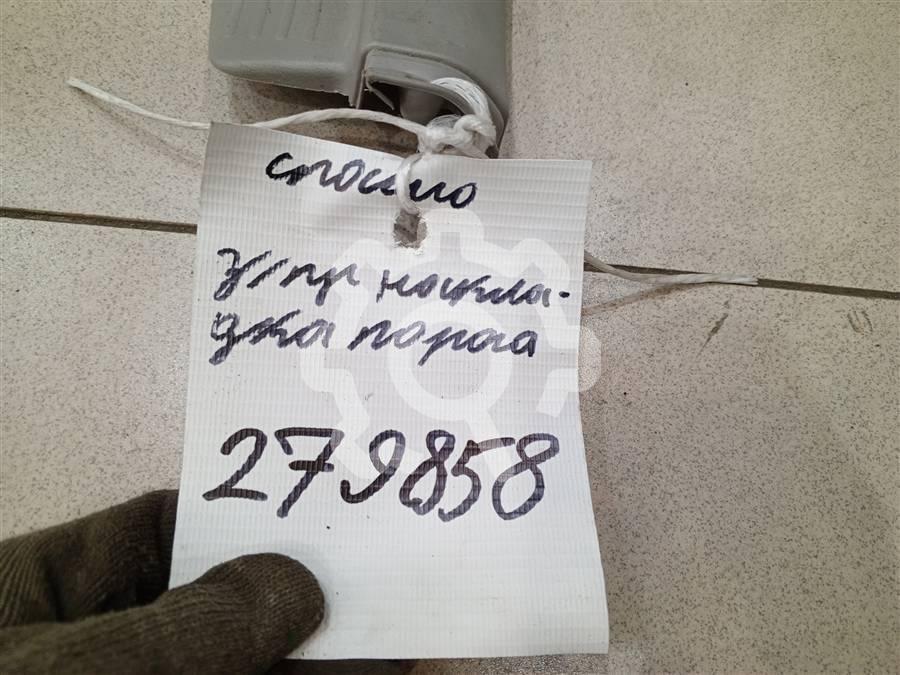 З/пр накла-
дка порога
279858